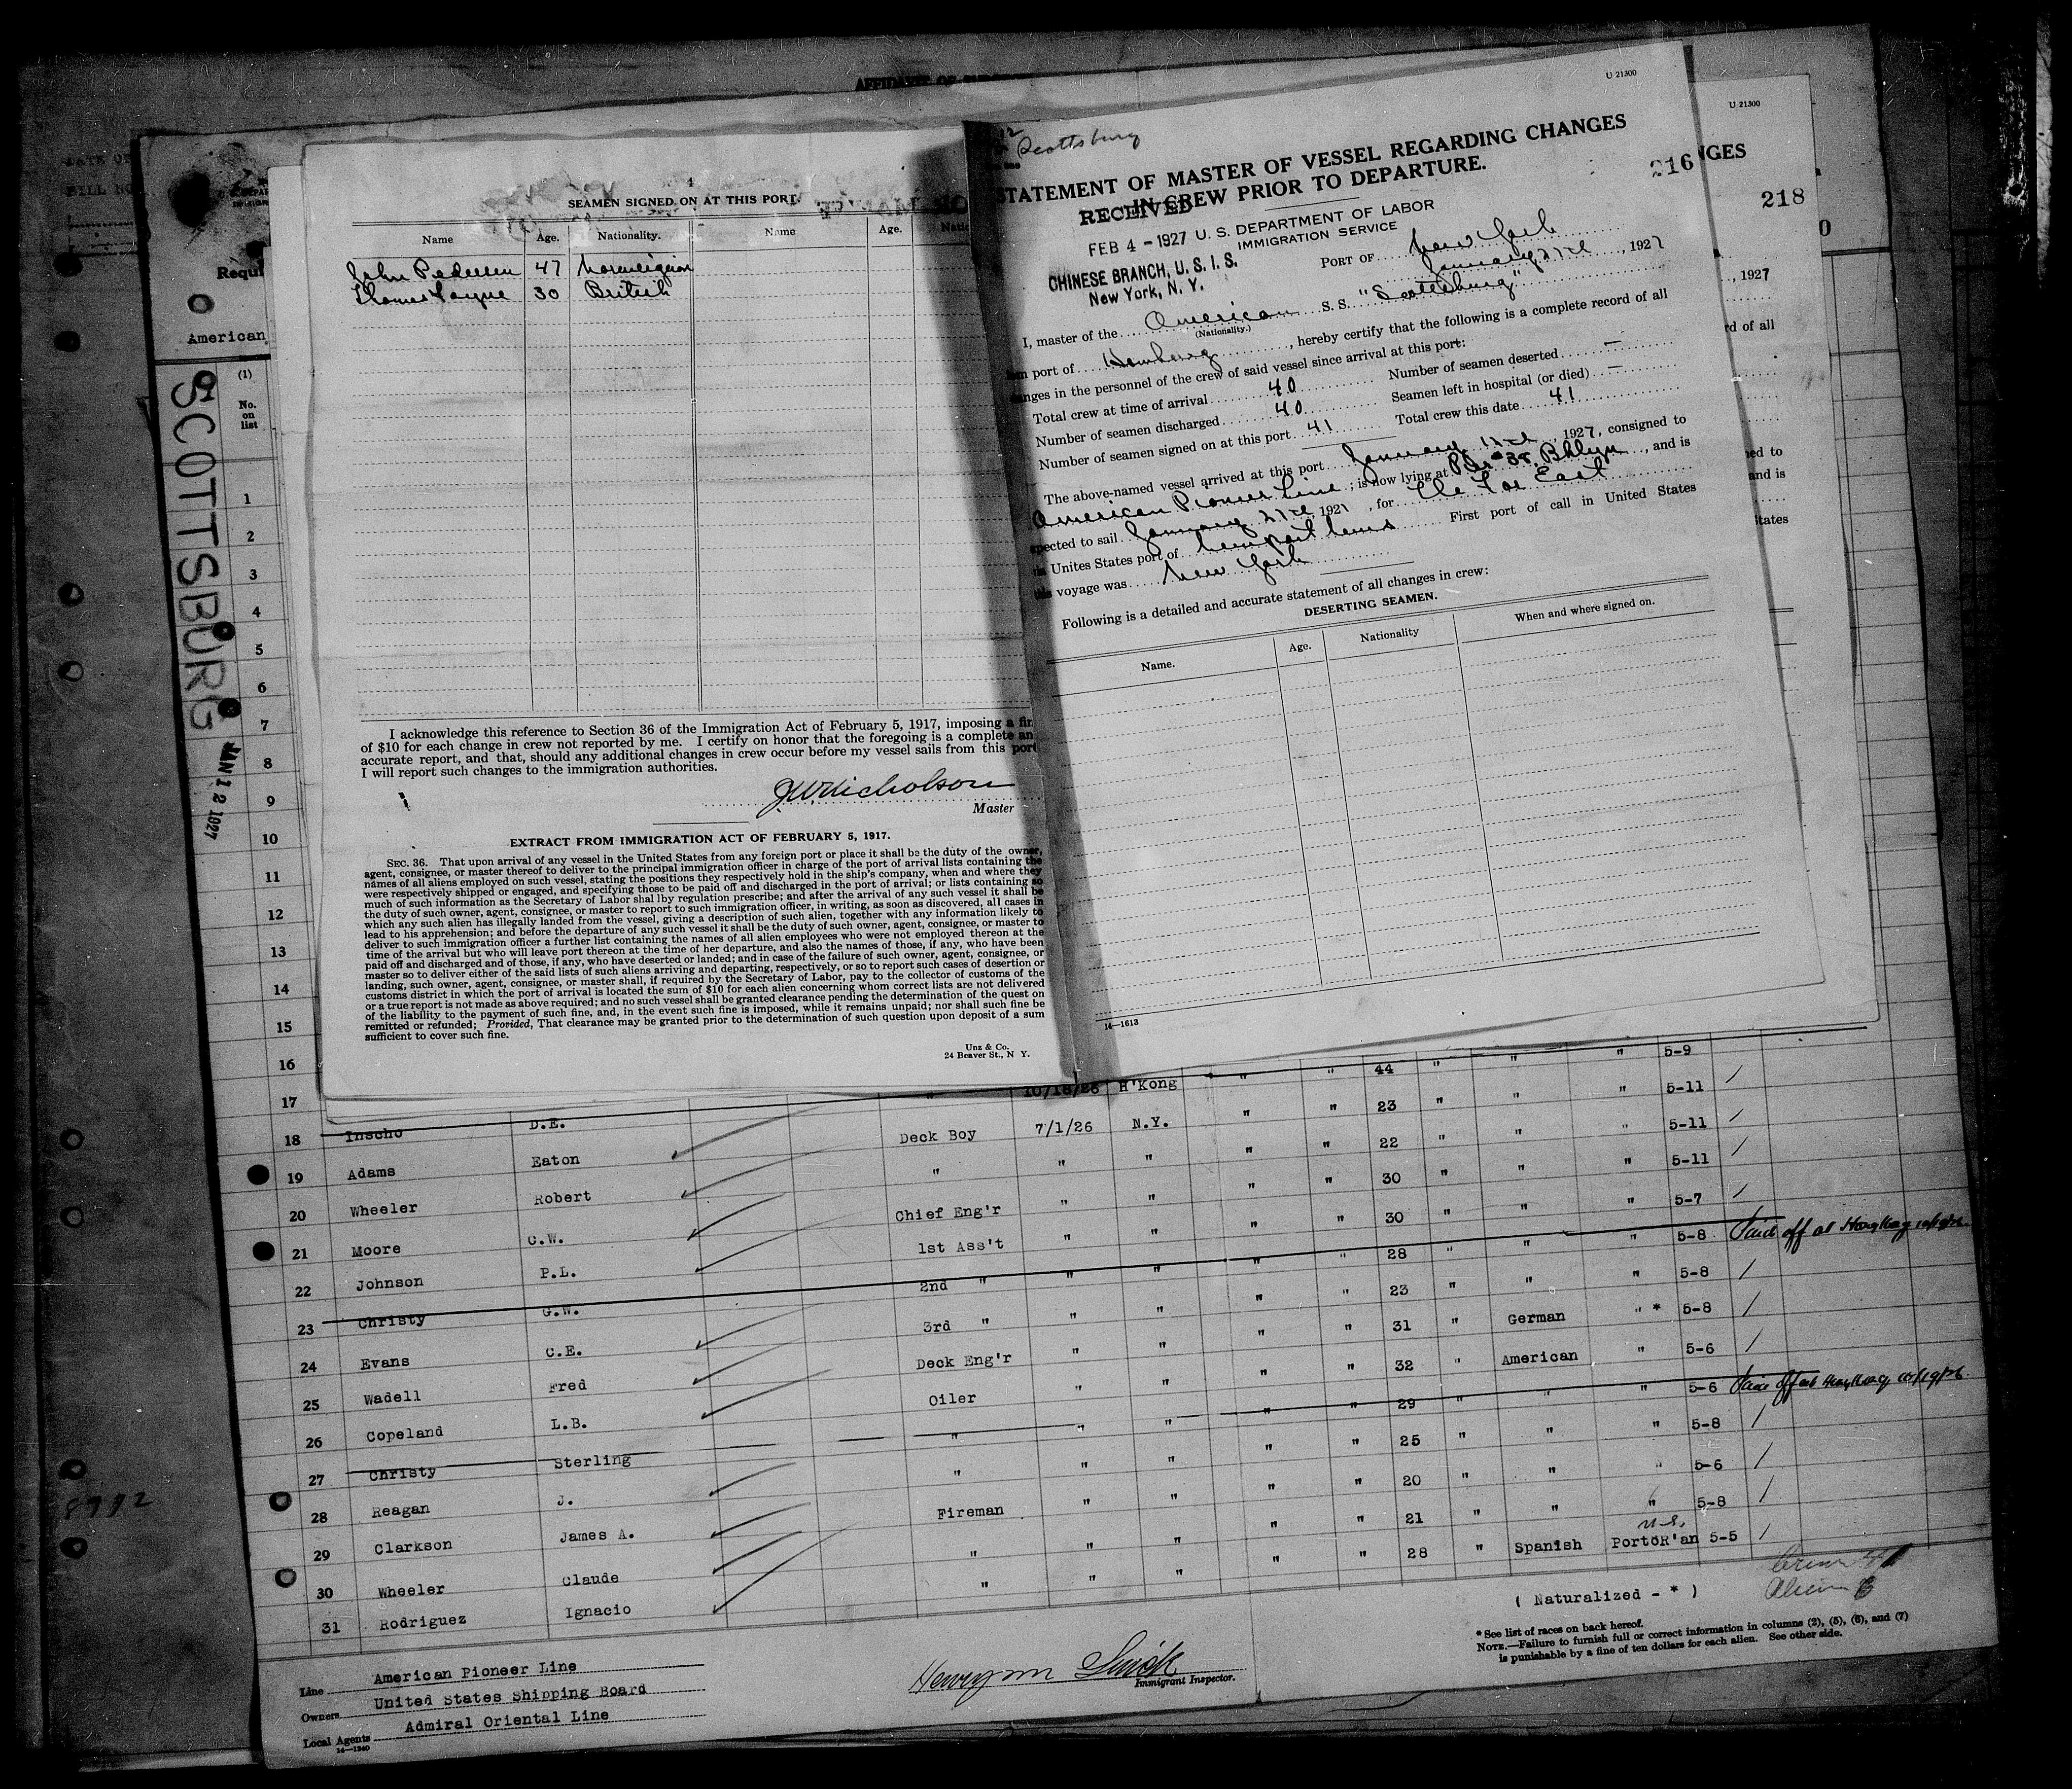 AFFIDAVIT OF
Scottsburg
U 21300
U 21300
STATEMENT OF MASTER OF VESSEL REGARDING CHANGES
IN CREW PRIOR TO DEPARTURE.
216
NGES
218
0
RECEIVED
FEB 4 - 1927
CHINESE BRANCH, U. S. I. S.
New York, N. Y.
U. S. DEPARTMENT OF LABOR
IMMIGRATION SERVICE
PORT OF New York
January, 1927
, 1927
I, master of the American S. S. "Scottsburg"
(Nationality.)
port of Hamburg, hereby certify that the following is a complete record of all
rd of all
anges in the personnel of the crew of said vessel since arrival at this port:
Total crew at time of arrival 40 Number of seamen deserted —
Number of seamen discharged 40 Seamen left in hospital (or died) —
Number of seamen signed on at this port 41 Total crew this date 41
The above-named vessel arrived at this port January 12th, 1927, consigned to
American Pioneer Line; is now lying at Bklyn, and is
pected to sail January, 1927, for The Far East
Unites States port of Newport News First port of call in United States
voyage was New York
ed to
and is
States
Following is a detailed and accurate statement of all changes in crew:
DESERTING SEAMEN.
Name. Age. Nationality When and where signed on.
14—1613
4
SEAMEN SIGNED ON AT THIS PORT
Name Age. Nationality. Name Age.
John Pedersen 47 Norweigian
Thomas 30 British
I acknowledge this reference to Section 36 of the Immigration Act of February 5, 1917, imposing a fin
of $10 for each change in crew not reported by me. I certify on honor that the foregoing is a complete an
accurate report, and that, should any additional changes in crew occur before my vessel sails from this port
I will report such changes to the immigration authorities.
J.W. Nicholson
Master
EXTRACT FROM IMMIGRATION ACT OF FEBRUARY 5, 1917.
SEC. 36. That upon arrival of any vessel in the United States from any foreign port or place it shall be the duty of the owner,
agent, consignee, or master thereof to deliver to the principal immigration officer in charge of the port of arrival lists containing the
names of all aliens employed on such vessel, stating the positions they respectively hold in the ship's company, when and where they
were respectively shipped or engaged, and specifying those to be paid off and discharged in the port of arrival; or lists containing so
much of such information as the Secretary of Labor shal lby regulation prescribe; and after the arrival of any such vessel it shall be
the duty of such owner, agent, consignee, or master to report to such immigration officer, in writing, as soon as discovered, all cases in
which any such alien has illegally landed from the vessel, giving a description of such alien, together with any information likely to
lead to his apprehension; and before the departure of any such vessel it shall be the duty of such owner, agent, consignee, or master to
deliver to such immigration officer a further list containing the names of all alien employees who were not employed thereon at the
time of the arrival but who will leave port thereon at the time of her departure, and also the names of those, if any, who have been
paid off and discharged and of those, if any, who have deserted or landed; and in case of the failure of such owner, agent, consignee, or
master so to deliver either of the said lists of such aliens arriving and departing, respectively, or so to report such cases of desertion or
landing, such owner, agent, consignee, or master shall, if required by the Secretary of Labor, pay to the collector of customs of the
customs district in which the port of arrival is located the sum of $10 for each alien concerning whom correct lists are not delivered
or a true report is not made as above required; and no such vessel shall be granted clearance pending the determination of the quest on
of the liability to the payment of such fine, and, in the event such fine is imposed, while it remains unpaid; nor shall such fine be
remitted or refunded; Provided, That clearance may be granted prior to the determination of such question upon deposit of a sum
sufficient to cover such fine.
Unz & Co.
24 Beaver St., N Y.
Requi
American
SCOTTSBURG
JAN 12 1927
(1)
No.
on
list
1
2
3
4
5
6
7
8
9
10
11
12
13
14
15
16 5-9
17 " 10/18/26 H'Kong " " 44 " " " 5-11
18 Inscho D.E. Deck Boy 7/1/26 N.Y. " " 23 " " " 5-11
19 Adams Eaton " " " " " 22 " " " 5-11
20 Wheeler Robert Chief Eng'r " " " " 30 " " " 5-7
21 Moore C.W. 1st Ass't " " " " 30 " " " 5-8 Paid off at Hong Kong
22 Johnson P.L. 2nd " " " " " 28 " " " 5-8
23 Christy G.W. 3rd " " " " " 23 " German " * 5-8
24 Evans C.E. Deck Eng'r " " " " 31 " American " 5-6
25 Wadell Fred Oiler " " " " 32 " " " 5-6 Paid off at Hong Kong 10/19/26
26 Copeland L.B. " " " " " 29 " " " 5-8
27 Christy Sterling " " " " " 25 " " " 5-6
28 Reagan J. Fireman " " " " 20 " " " 5-8
29 Clarkson James A. " " " " " 21 " Spanish U.S. PortoR'an 5-5
30 Wheeler Claude " " " " " 28
31 Rodriguez Ignacio
8992
( Naturalized - * )
Alien
* See list of races on back hereof.
NOTE.—Failure to furnish full or correct information in columns (2), (5), (6), and (7)
is punishable by a fine of ten dollars for each alien. See other side.
Line American Pioneer Line
Owners United States Shipping Board
Local Agents Admiral Oriental Line
14—1240
Immigrant Inspector.